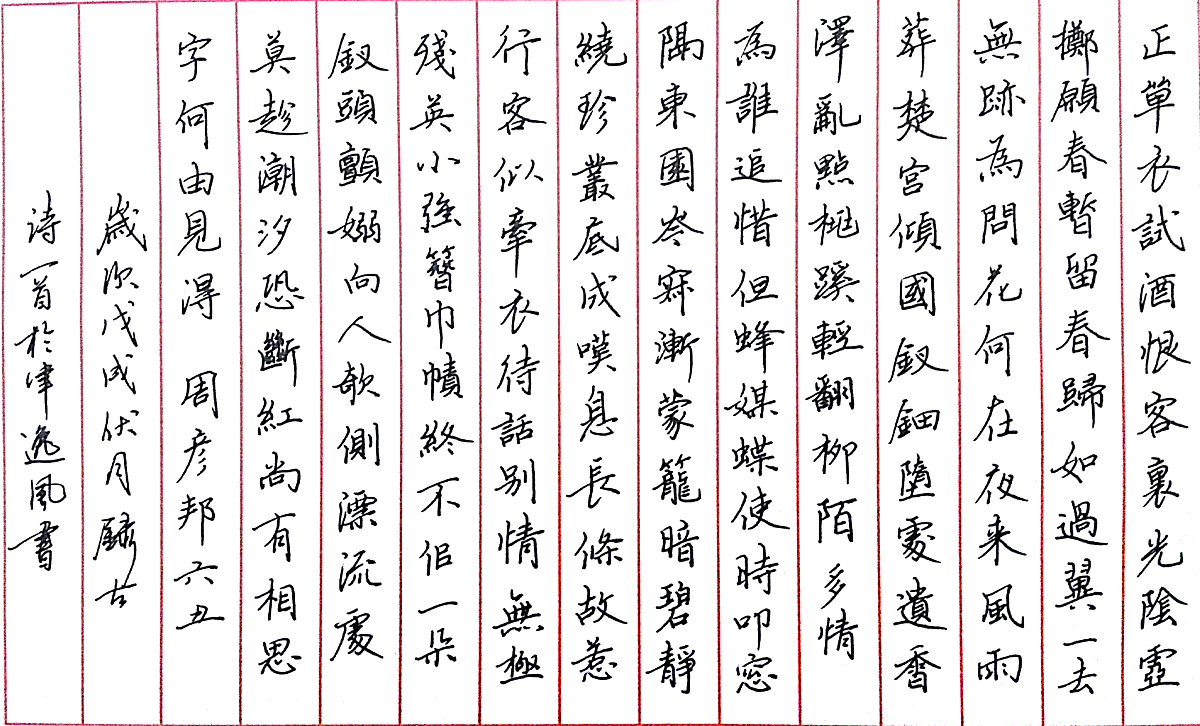 正單衣試酒恨客裏光陰虛
擲願春暫留春歸如過翼一去
無跡為問花何在夜来風雨
葬楚宮傾國釵鈿墮處遺香
澤亂點桃蹊輕翻柳陌多情
為誰追惜但蜂媒蝶使時叩窓
隔東園岑寂漸蒙籠暗碧靜
繞珍叢底成嘆息長條故惹
行客似牽衣待話别情無極
殘英小強簪巾幘終不佀一朵
釵頭顫嫋向人欹側漂流處
莫趁潮汐恐斷紅尚有相思
字何由見得 周彦邦六丑
歲次戊戌伏月録古
诗一首於津逸風書